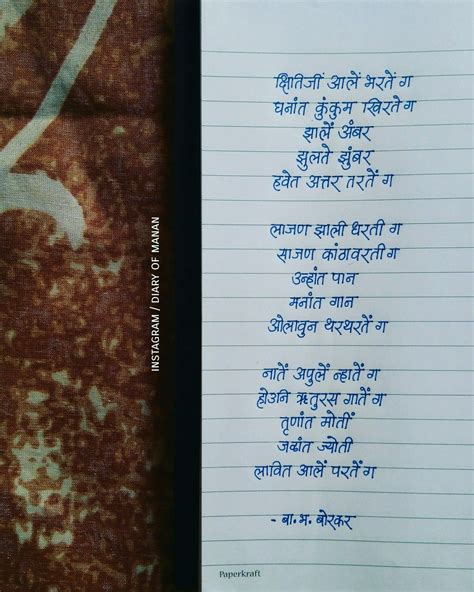 क्षितिजीं आलें भरतें ग
घनांत कुंकुम खिरते ग
झालें अंबर
झुलते झुंबर
हवेत अत्तर तरतें ग
लाजण झाली धरती ग
साजण कांठावरती ग
उन्हांत पान
मनांत गान
ओलावुन थरथरतें ग
नातें अपुलें न्हातें ग
होउनि ऋतुरस गातें ग
तृणांत मोतीं
जळांत ज्योती
लावित आलें परतें ग
- बा. भ. बोरकर
Paperkraft
INSTAGRAM / DIARY OF MANAN